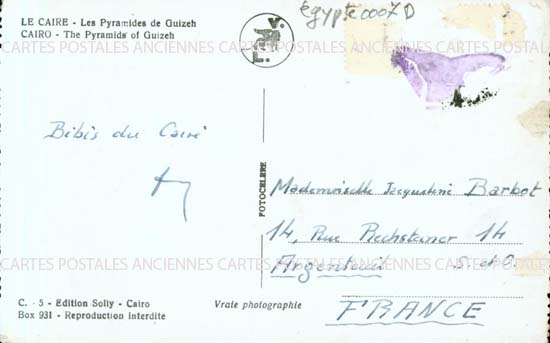 LE CAIRE - Les Pyramides de Guizeh
CAIRO - The Pyramids of Guizeh
V.
L.
égypte0007D
CARTES POSTALES ANCIENNES CARTES POSTALES ANCIENNES CARTES POSTALES ANCIENNES
Bibis du Caire
FOTOCELERE
Mademoiselle Jacqueline Barbot
14, Rue 14
Argenteuil S. et O.
FRANCE
C. - 5 - Edition Solly - Cairo
Box 931 - Reproduction interdite
Vraie photographie